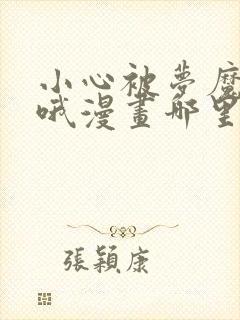 小心被夢魔
哦漫畫那里
張穎康